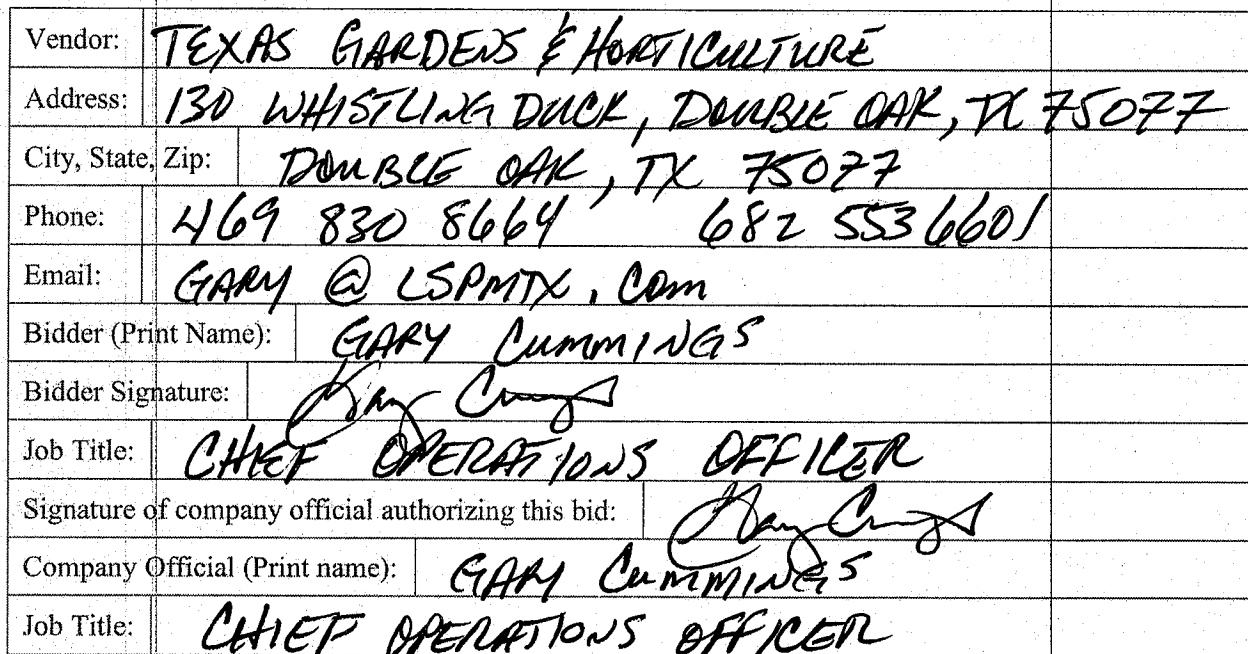 Vendor: TEXAS GARDENS & HORTICULTURE
Address: 130 WHISTLING DUCK, DOUBLE OAK, TX 75077
City, State, Zip: DOUBLE OAK, TX 75077
Phone: 469 830 8664 682 553 6601
Email: GARY @ LSPMTX.COM
Bidder (Print Name): GARY CUMMINGS
Bidder Signature: Gary Cummings
Job Title: CHIEF OPERATIONS OFFICER
Signature of company official authorizing this bid: Gary Cummings
Company Official (Print name): GARY CUMMINGS
Job Title: CHIEF OPERATIONS OFFICER